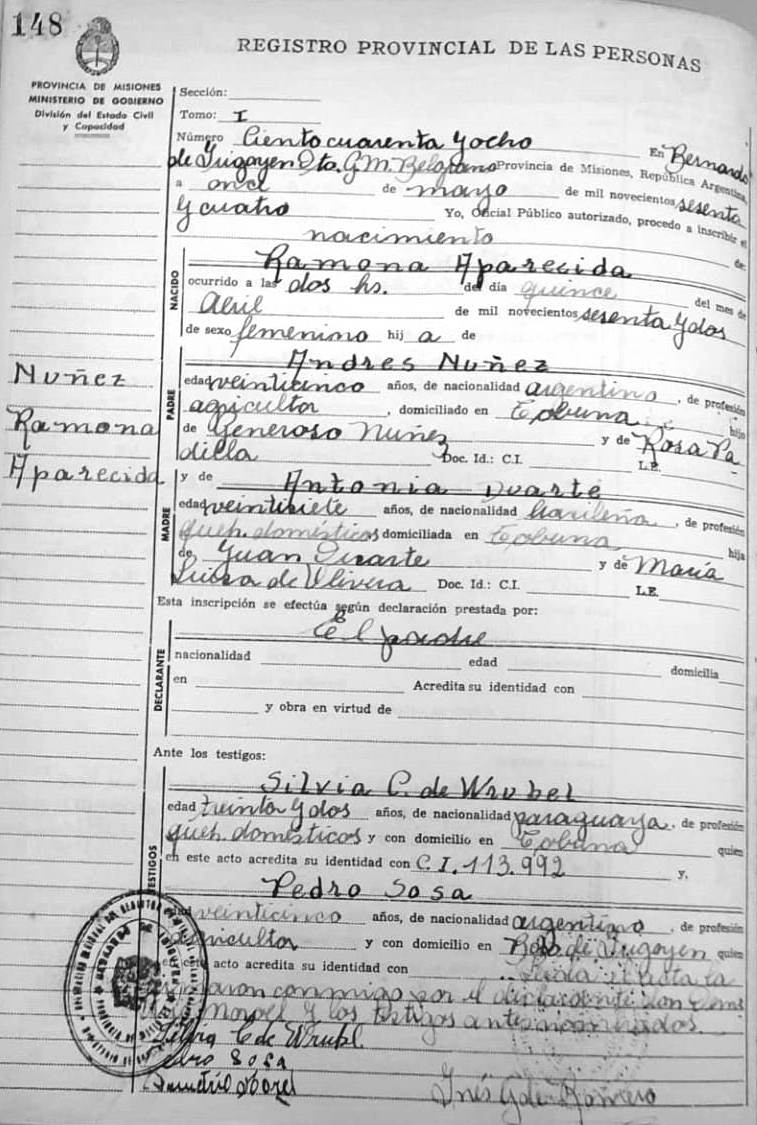 148
REGISTRO PROVINCIAL DE LAS PERSONAS
PROVINCIA DE MISIONES
MINISTERIO DE GOBIERNO
División del Estado Civil
y Capacidad
Sección:
Tomo: I
Número Ciento cuarenta y ocho En Bernardo
de Irigoyen Dto. G.M. Belgrano Provincia de Misiones, República Argentina,
a once de mayo de mil novecientos sesenta
y cuatro Yo, Oficial Público autorizado, procedo a inscribir el
nacimiento de:
NACIDO
Ramona Aparecida
ocurrido a las dos hs. del día quince del mes de
Abril de mil novecientos sesenta y dos
de sexo femenino hij a de
Nuñez
Ramona
Aparecida
PADRE
Andres Nuñez
edad veinticinco años, de nacionalidad argentino, de profesión
agricultor, domiciliado en Tobuna, hijo
de Generoso Nuñez y de Rosa Pa
dilla Doc. Id.: C.I. L.E.
MADRE
y de Antonia Duarte
edad veintisiete años, de nacionalidad brasileña, de profesión
queh. domésticos domiciliada en Tobuna, hija
de Juan Duarte y de María
Luisa de Olivera Doc. Id.: C.I. L.E.
Esta inscripción se efectúa según declaración prestada por:
DECLARANTE
El padre
nacionalidad edad domicilia
en Acredita su identidad con
y obra en virtud de
Ante los testigos:
TESTIGOS
Silvia C. de Wrubel
edad treinta y dos años, de nacionalidad paraguaya, de profesión
queh. domésticos y con domicilio en Tobuna quien
en este acto acredita su identidad con C.I. 113.992 y,
Pedro Sosa
edad veinticinco años, de nacionalidad argentino, de profesión
agricultor y con domicilio en Bdo de Irigoyen quien
en este acto acredita su identidad con Leída el acta la
firmaron conmigo por el declarante don
Morel y los testigos antes nombrados.
Silvia C de Wrubl.
Pedro Sosa
Demetrio Morel
Inés G de Romero